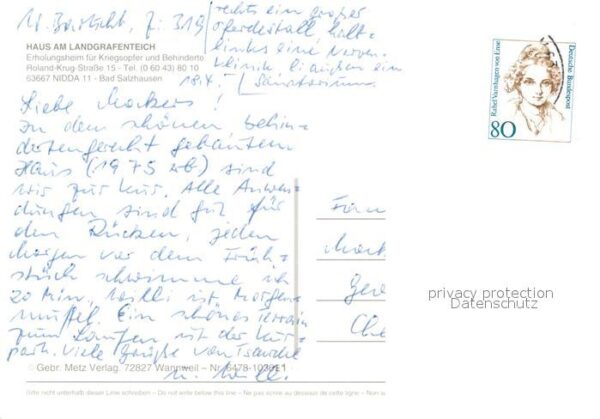 Z: 319
rechts ein großer
Pferdestall, halb-
links eine Nerven-
klinik, li außen ein
Sanatorium
18.4.
HAUS AM LANDGRAFENTEICH
Erholungsheim für Kriegsopfer und Behinderte
Roland-Krug-Straße 15 - Tel. (0 60 43) 80 10
63667 NIDDA 11 - Bad Salzhausen
Liebe
In dem schönen, behin-
dertengerecht gebauten
Haus (1975 ) sind
wir zur Kur. Alle Anwen-
dungen sind gut für
den Rücken, jeden
Morgen vor dem Früh-
stück schwimme ich
20 Min, ist Morgen-
muffel. Ein schönes Terrain
zum Laufen ist der Kur-
park. Viele Grüße von
u. Willi.
Rahel Varnhagen von Ense
Deutsche Bundespost
80
privacy protection
Datenschutz
Gebr. Metz Verlag, 72827 Wannweil – Nr. 6478-1036E1
Bitte nicht unterhalb dieser Linie schreiben - Do not write below this line - Ne pas écrire au dessous de cette ligne - Non